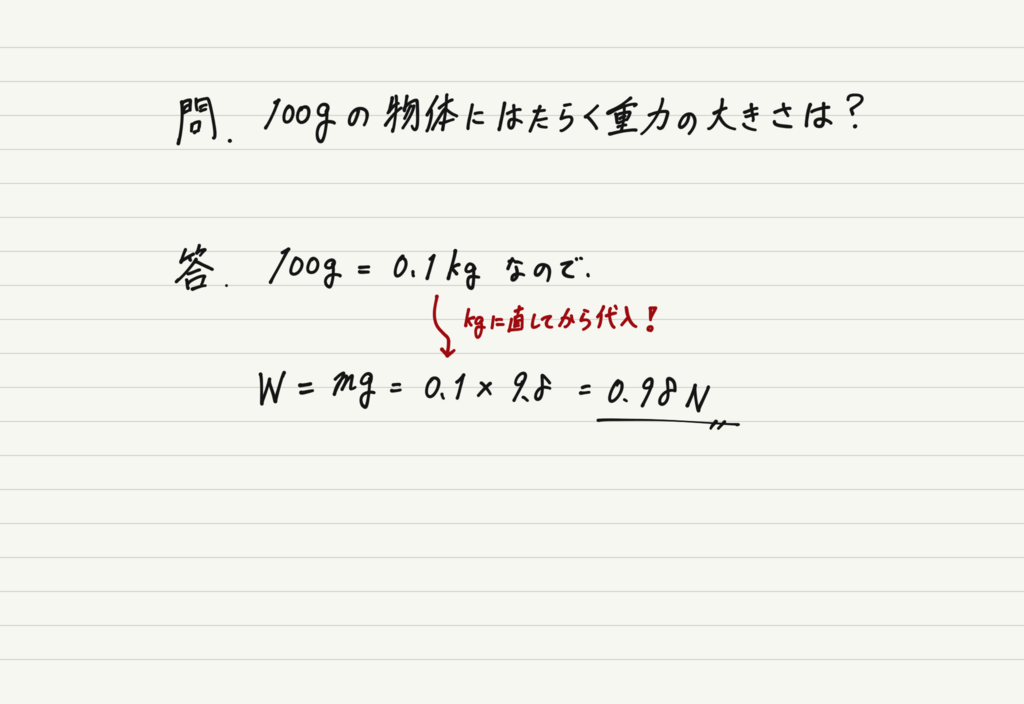 問. 100gの物体にはたらく重力の大きさは?
答. 100g = 0.1kg なので.
kgに直してから代入!
W = mg = 0.1 × 9.8 = 0.98 N